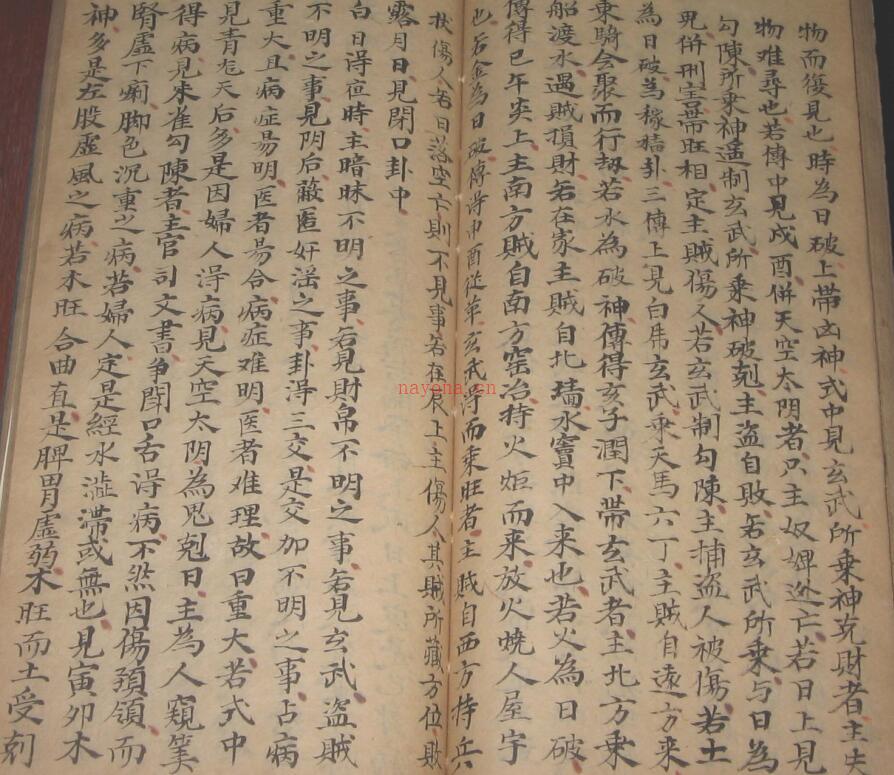 物而復見也時為日破上带凶神式中見玄武所乗神克財者主失
物难尋也若傳中見戍酉併天空太阴者只主奴婢迯亡若日上見
勾陳所乗神遥制玄武所乗神破剋主盗自敗若玄武所乗与日為
鬼併刑害帶旺相定主賊傷人若玄武制勾陳主捕盗人被傷若土
為日破為稼穡卦三傳上見白乕玄武乗天馬六丁主賊自遠方来
乗騎会聚而行刼若水為破神傳得亥子潤下帶玄武者主北方乗
船渡水遇賊損財若在家主賊自北墙水竇中入来也若火為日破
傳得巳午炎上主南方賊自南方窑冶持火炬而来放火燒人屋宇
也若金為日破傳得申酉従革玄武得而乗旺者主賊自西方持兵
扙傷人若日落空亡則不見事若在辰上主傷人其賊所藏方位敗
露月日見閉口卦中
白日得夜時主暗昧不明之事若見財帛不明之事若見玄武盗賊
不明之事見阴后蔽匿奸滛之事卦得三交是交加不明之事占病
重大且病症昜明医者昜合病症难明医者难理故曰重大若式中
見青龙天后多是因婦人得病見天空太阴為鬼剋日主為人窺筭
得病見朱雀勾陳者主官司文書争閗口舌得病不然因傷頚領而
腎虚下痢脚色沉重之病若婦人定是經水澁滞或無也見寅夘木
神多是左股虚風之病若木旺合曲直是脾胃虚弱木旺而土受剋
nayona.cn